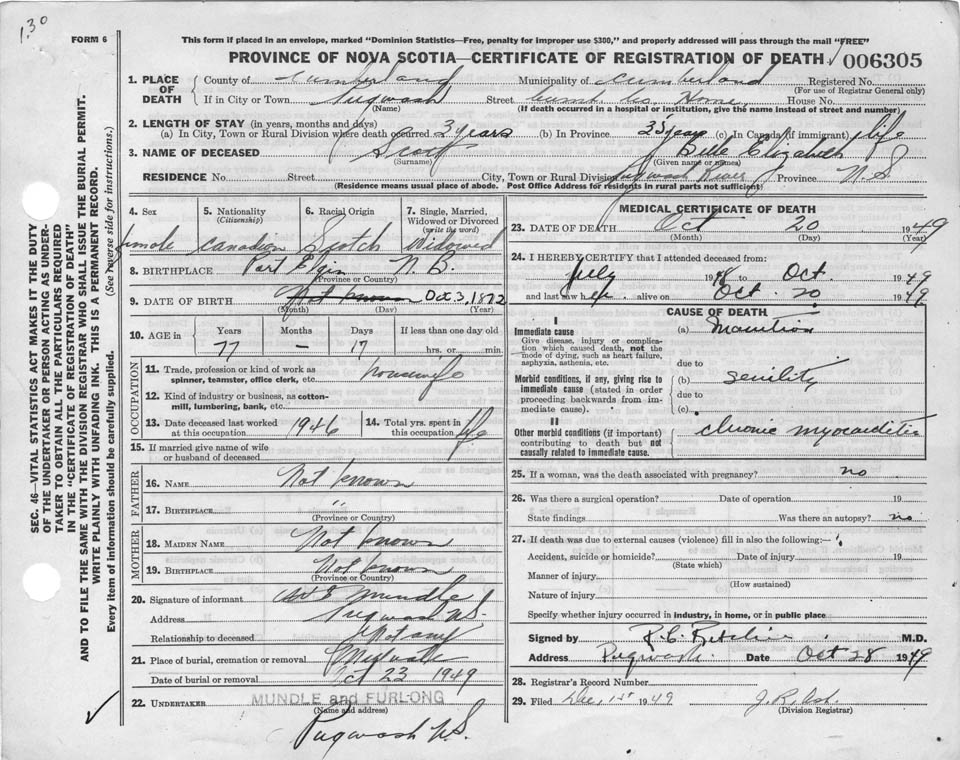 1.30
FORM 6
This form if placed in an envelope, marked "Dominion Statistics—Free, penalty for improper use $300," and properly addressed will pass through the mail "FREE"
PROVINCE OF NOVA SCOTIA—CERTIFICATE OF REGISTRATION OF DEATH
006305
1. PLACE OF DEATH
County of Cumberland Municipality of Cumberland Registered No.
(For use of Registrar General only)
If in City or Town Pugwash Street Cumb. Co. Home, House No.
(Name) (If death occurred in a hospital or institution, give the name instead of street and number)
2. LENGTH OF STAY (in years, months and days)
(a) In City, Town or Rural Division where death occurred 3 years (b) In Province 35 years (c) In Canada (if immigrant) life
3. NAME OF DECEASED Scott Belle Elizabeth
(Surname) (Given name or names)
RESIDENCE No. Street City, Town or Rural Division Pugwash River Province N.S
(Residence means usual place of abode. Post Office Address for residents in rural parts not sufficient)
4. Sex 5. Nationality (Citizenship) 6. Racial Origin 7. Single, Married, Widowed or Divorced (write the word)
female Canadian Scotch Widowed
8. BIRTHPLACE Port Elgin N.B.
(Province or Country)
9. DATE OF BIRTH Not known Oct 3, 1872
(Month) (Day) (Year)
10. AGE in Years Months Days If less than one day old
77 – 17 hrs. or min.
OCCUPATION
11. Trade, profession or kind of work as spinner, teamster, office clerk, etc. housewife
12. Kind of industry or business, as cotton-mill, lumbering, bank, etc.
13. Date deceased last worked at this occupation 1946
14. Total yrs. spent in this occupation life
15. If married give name of wife or husband of deceased
FATHER
16. NAME Not known
17. BIRTHPLACE "
(Province or Country)
MOTHER
18. MAIDEN NAME Not known
19. BIRTHPLACE Not known
(Province or Country)
20. Signature of informant Mundle
Address Pugwash N.S.
Relationship to deceased Not any
21. Place of burial, cremation or removal Pugwash
Date of burial or removal Oct 23 1949
22. UNDERTAKER MUNDLE and FURLONG
(Name and address)
Pugwash N.S.
MEDICAL CERTIFICATE OF DEATH
23. DATE OF DEATH Oct 20 1949
(Month) (Day) (Year)
24. I HEREBY CERTIFY that I attended deceased from:
July 1948 to Oct. 1949
and last saw her alive on Oct. 20 1949
CAUSE OF DEATH
I
Immediate cause (a) Inanition
Give disease, injury or complication which caused death, not the mode of dying, such as heart failure, asphyxia, asthenia, etc.
due to
Morbid conditions, if any, giving rise to immediate cause (stated in order proceeding backwards from immediate cause).
(b) senility
due to
(c)
II
Other morbid conditions (if important) contributing to death but not causally related to immediate cause.
chronic myocarditis
25. If a woman, was the death associated with pregnancy? no
26. Was there a surgical operation? Date of operation 19
State findings Was there an autopsy? no
27. If death was due to external causes (violence) fill in also the following:—
Accident, suicide or homicide? Date of injury 19
(State which)
Manner of injury
(How sustained)
Nature of injury
Specify whether injury occurred in industry, in home, or in public place
Signed by M.D.
Address Pugwash. Date Oct 28 1949
28. Registrar's Record Number
29. Filed Dec. 1st 1949
(Division Registrar)
SEC. 46—VITAL STATISTICS ACT MAKES IT THE DUTY
OF THE UNDERTAKER OR PERSON ACTING AS UNDER-
TAKER TO OBTAIN ALL THE PARTICULARS REQUIRED
IN THE "CERTIFICATE OF REGISTRATION OF DEATH"
AND TO FILE THE SAME WITH THE DIVISION REGISTRAR WHO SHALL ISSUE THE BURIAL PERMIT.
WRITE PLAINLY WITH UNFADING INK. THIS IS A PERMANENT RECORD.
Every item of information should be carefully supplied. (See reverse side for instructions.)